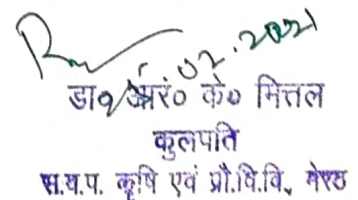 02.2021
डा० आर० के० मित्तल
कुलपति
स.व.प. कृषि एवं प्रौ.वि.वि., मेरठ